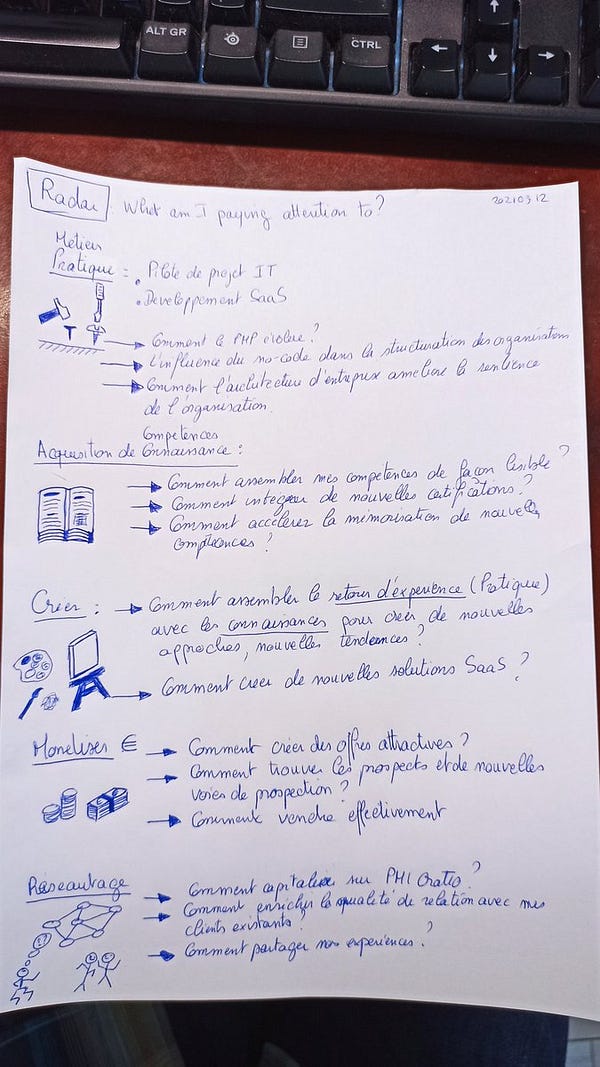 ALT GR
CTRL
Radar
What am I paying attention to?
20210312
Métier
Pratique :
• Pilote de projet IT
• Développement SaaS
→ Comment le PHP évolue ?
→ L'influence du no-code dans la structuration des organisations
→ Comment l'architecture d'entreprise améliore la
de l'organisation.
Compétences
Acquisition de Connaissance :
→ Comment assembler mes compétences de façon lisible ?
→ Comment intégrer de nouvelles certifications ?
→ Comment accélérer la mémorisation de nouvelles
compétences ?
Créer :
→ Comment assembler le retour d'expérience (Pratique)
avec les connaissances pour créer de nouvelles
approches, nouvelles tendances ?
→ Comment créer de nouvelles solutions SaaS ?
Monétiser €
→ Comment créer des offres attractives ?
→ Comment trouver les prospects et de nouvelles
voies de prospection ?
→ Comment vendre effectivement
Réseautage
→ Comment capitaliser sur PHI Oratio ?
→ Comment enrichir la qualité de relation avec mes
clients existants ?
→ Comment partager nos expériences ?